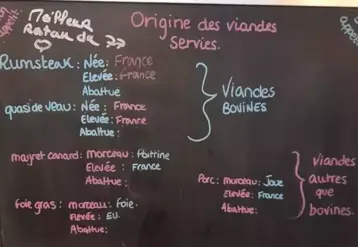 Meilleur
Origine des viandes
Servies.
Rumsteak: Née: France
Elevée: France
Abattue
Viandes
BOVINES
quasi de veau: Née: France
Elevée: France
Abattue:
magret canard: morceau: Poitrine
Elevée: France
Abattue:
Porc: morceau: Joue
Elevée: France
Abattue:
viandes
autres
que
bovines.
foie gras: morceau: Foie.
Elevée: EU.
Abattue: